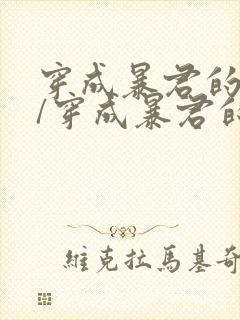 穿成暴君的
/穿成暴君的
維克拉馬基奇